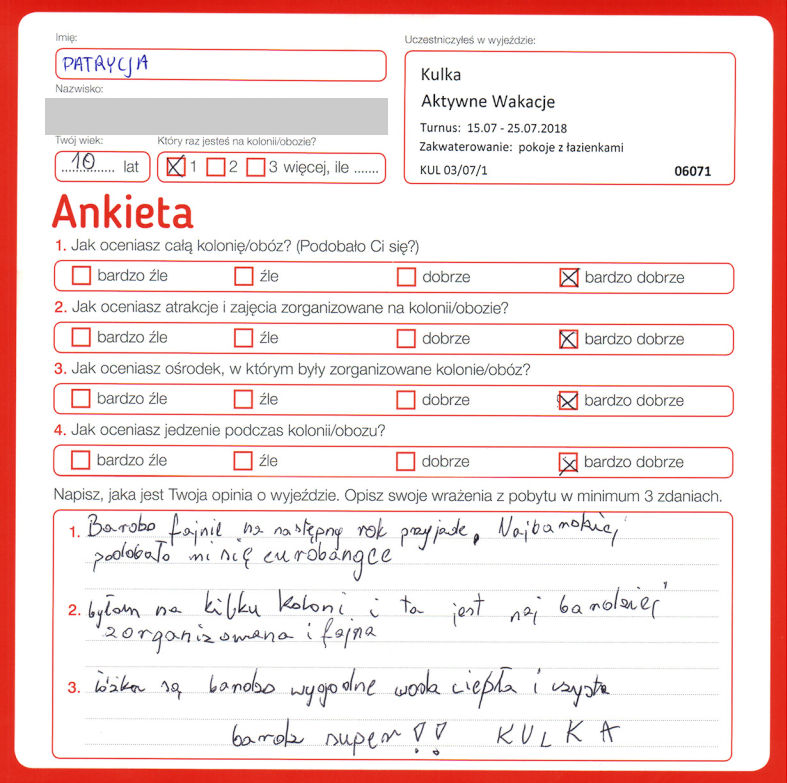 Imię:
PATRYCJA
Nazwisko:
Twój wiek:
10 lat
Który raz jesteś na kolonii/obozie?
1 2 3 więcej, ile .......
Uczestniczyłeś w wyjeździe:
Kulka
Aktywne Wakacje
Turnus: 15.07 - 25.07.2018
Zakwaterowanie: pokoje z łazienkami
KUL 03/07/1 06071
Ankieta
1. Jak oceniasz całą kolonię/obóz? (Podobało Ci się?)
bardzo źle źle dobrze bardzo dobrze
2. Jak oceniasz atrakcje i zajęcia zorganizowane na kolonii/obozie?
bardzo źle źle dobrze bardzo dobrze
3. Jak oceniasz ośrodek, w którym były zorganizowane kolonie/obóz?
bardzo źle źle dobrze bardzo dobrze
4. Jak oceniasz jedzenie podczas kolonii/obozu?
bardzo źle źle dobrze bardzo dobrze
Napisz, jaka jest Twoja opinia o wyjeździe. Opisz swoje wrażenia z pobytu w minimum 3 zdaniach.
1. Bardzo fajnie na następny rok przyjade, Najbardziej
podobało mi się eurobangee
2. byłam na kilku koloni i ta jest naj bardzieć
zorganizowana i fajna
3. łóżka są bardzo wygodne woda ciepła i czysta
bardz super!! KULKA